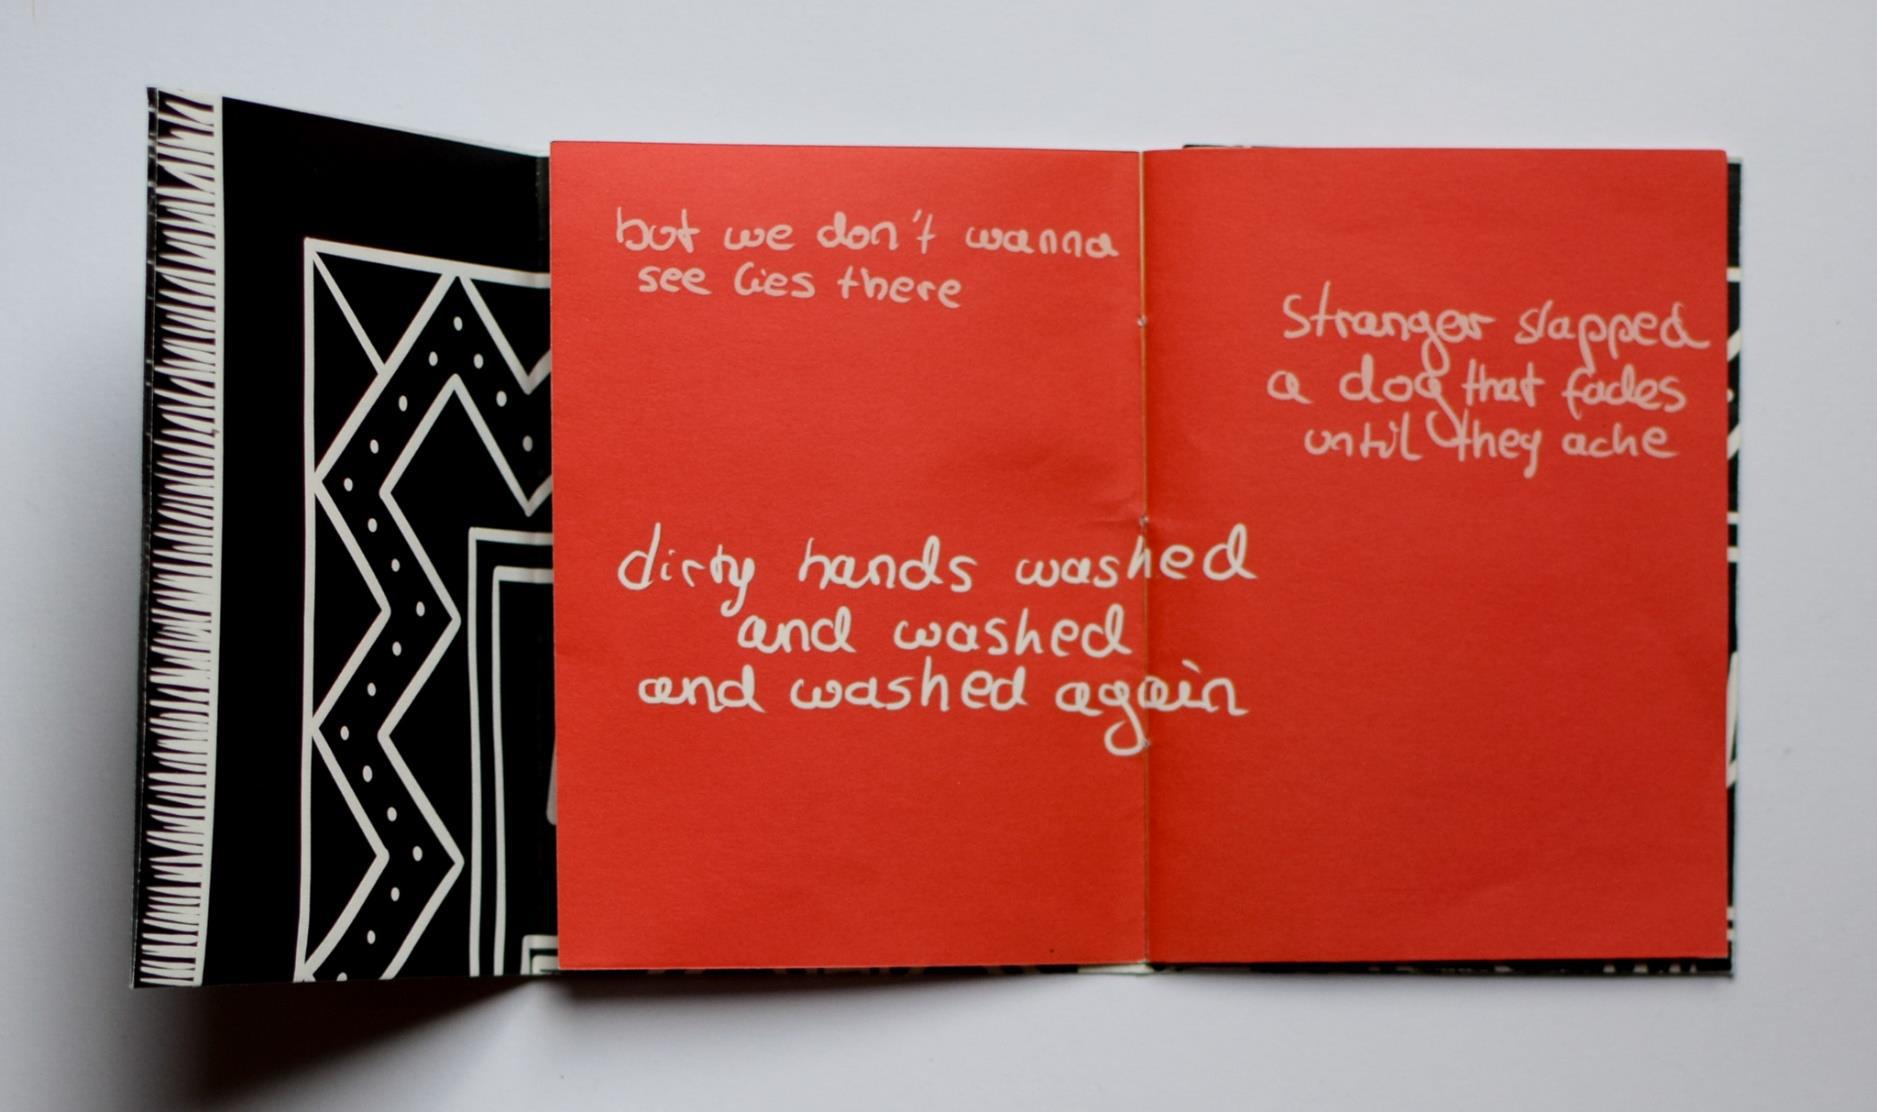 but we don't wanna
see lies there
stranger slapped
a dog that fades
until they ache
dirty hands washed
and washed
and washed again